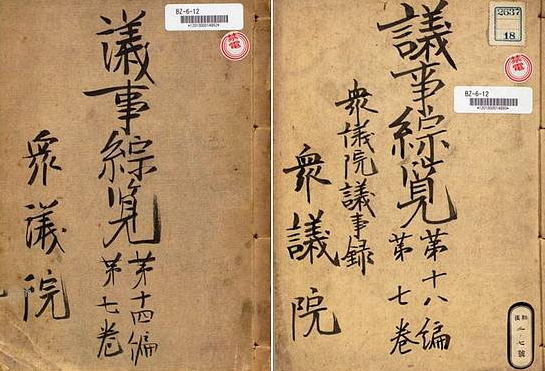 BZ-6-12
禁電
議事綜覧
第十四編
第七巻
衆議院
2637
18
禁電
BZ-6-12
議事綜覧
第十八編
第七巻
衆議院議事録
衆議院